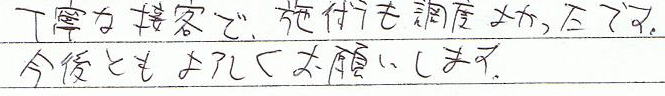 丁寧な接客で、施術も調度よかったです。
今後ともよろしくお願いします。